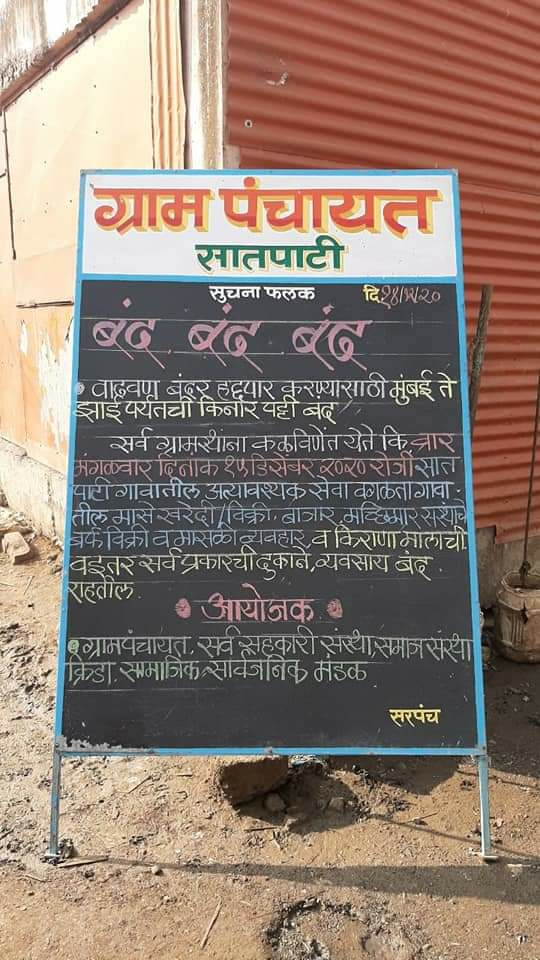 ग्राम पंचायत
सातपाटी
सुचना फलक दि १४/१२/२०
बंद बंद बंद
वाढवण बंदर हद्दपार करण्यासाठी मुंबई ते
झाई पर्यतची किनार पट्टी बंद
सर्व ग्रामस्थांना कळविणेत येते कि, वार
मंगळवार दिनांक १५ डिसेंबर २०२० रोजी सात
पाटी गावातील अत्यावश्यक सेवा वगळता गावा
तील मासे खरेदी/विक्री, बाजार, मच्छिमार संस्थांचे
बर्फ विक्री व मासळी व्यवहार, व किराणा मालाची
व इतर सर्व प्रकारची दुकाने, व्यवसाय बंद
राहतील.
आयोजक
ग्रामपंचायत, सर्व सहकारी संस्था, समाज संस्था
क्रिडा, सामाजिक सार्वजनिक मंडळ
सरपंच